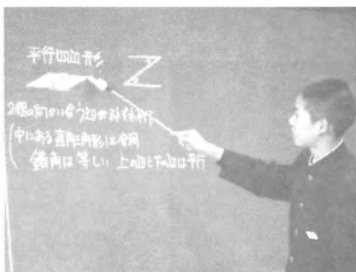 平行四辺形
2組の向かい合う辺がそれぞれ平行
(中にある直角三角形は合同
錯角は等しい 上の辺と下の辺は平行